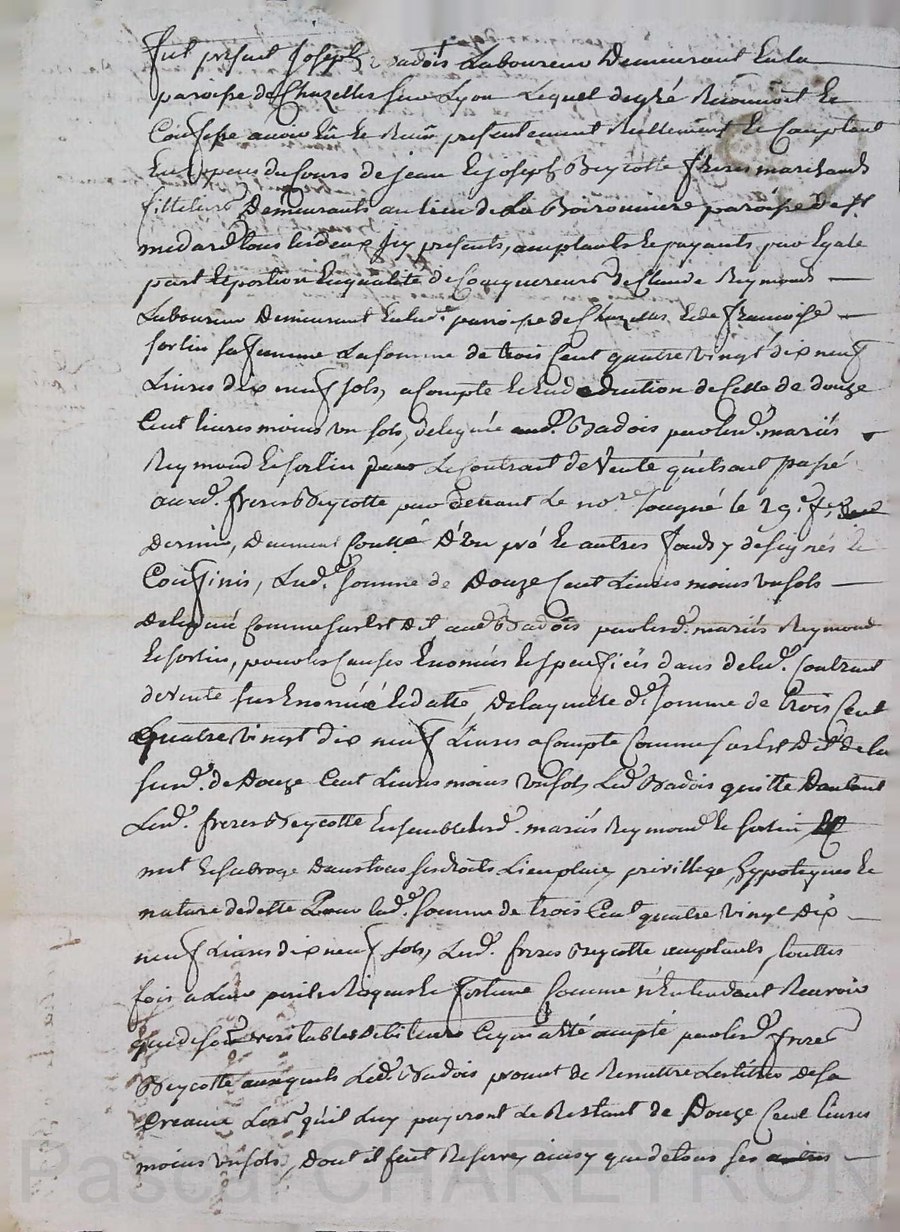 fut present Joseph Badois Laboureur Demeurant En la
paroisse de Chazelles sur Lyon Lequel de gré Reconnoit Et
Confesse avoir Eû Et Receû presentement Reellement Et Comptant
En Especes du Cours de jean Et joseph Beycotte freres marchands
fillieurs Demeurants au lieu de La Boironniere paroisse de St
medard tous les deux Icy presents, acceptants Et payants par Egale
part Et portion En qualité de Cacquereurs de Claude Reymond
Laboureur Demeurant En lad. paroisse de Chazelles Et de francoise
fortin sa femme La somme de trois Cent quatre vingt dix neuf
Livres dix neuf sols, a Compte Et En deduction de Celle de douze
Cent livres moins un sols, deleguée aud. Badois par lesd. mariés
Reymond Et fortin par Le Contrat de Vente qu'ils ont passé
auxd. freres Beycotte par devant Le nore. soussigné le 29e.
Dernier, D'un pré Et autres fonds y designés Et
Confinis, Lad. somme de Douze Cent Livres moins un sols
Deleguée Comme sus Est Dit aud Badois par lesd. mariés Reymond
Et fortin, pour les Causes Enoncées Et speciffiées dans led. Contrat
de Vente sus Enoncé Et datté, De laquelle d. somme de trois Cent
quatre Vingt dix neuf Livres a Compte Comme sus Est Dit de la
susd. de Douze Cent Livres moins un sols Led. Badois quitte Dautant
Lesd. freres Beycotte Ensemble lesd. mariés Reymond Et fortin
met Et subroge Dans tous ses droits Lieu place, privillege, hypoteques Et
nature de dette Pour lad. somme de trois Cent quatre Vingt Dix
neuf Livres dix neuf sols, Lesd. freres Beycotte acceptants, touttes
fois a Leur perils Risques Et fortune Comme n'Entendant Recevoir
que de ses veritables debiteurs Ce qui a été accepté par lesd. freres
Beycotte auxquels Led. Badois promet de Remettre Les titres de sa
Creance Lors qu'il Luy payeront Le Restant de Douze Cent livres
moins un sols, Dont il fait Reserve, ainsy que de tous ses
Pascal CHAREYRON